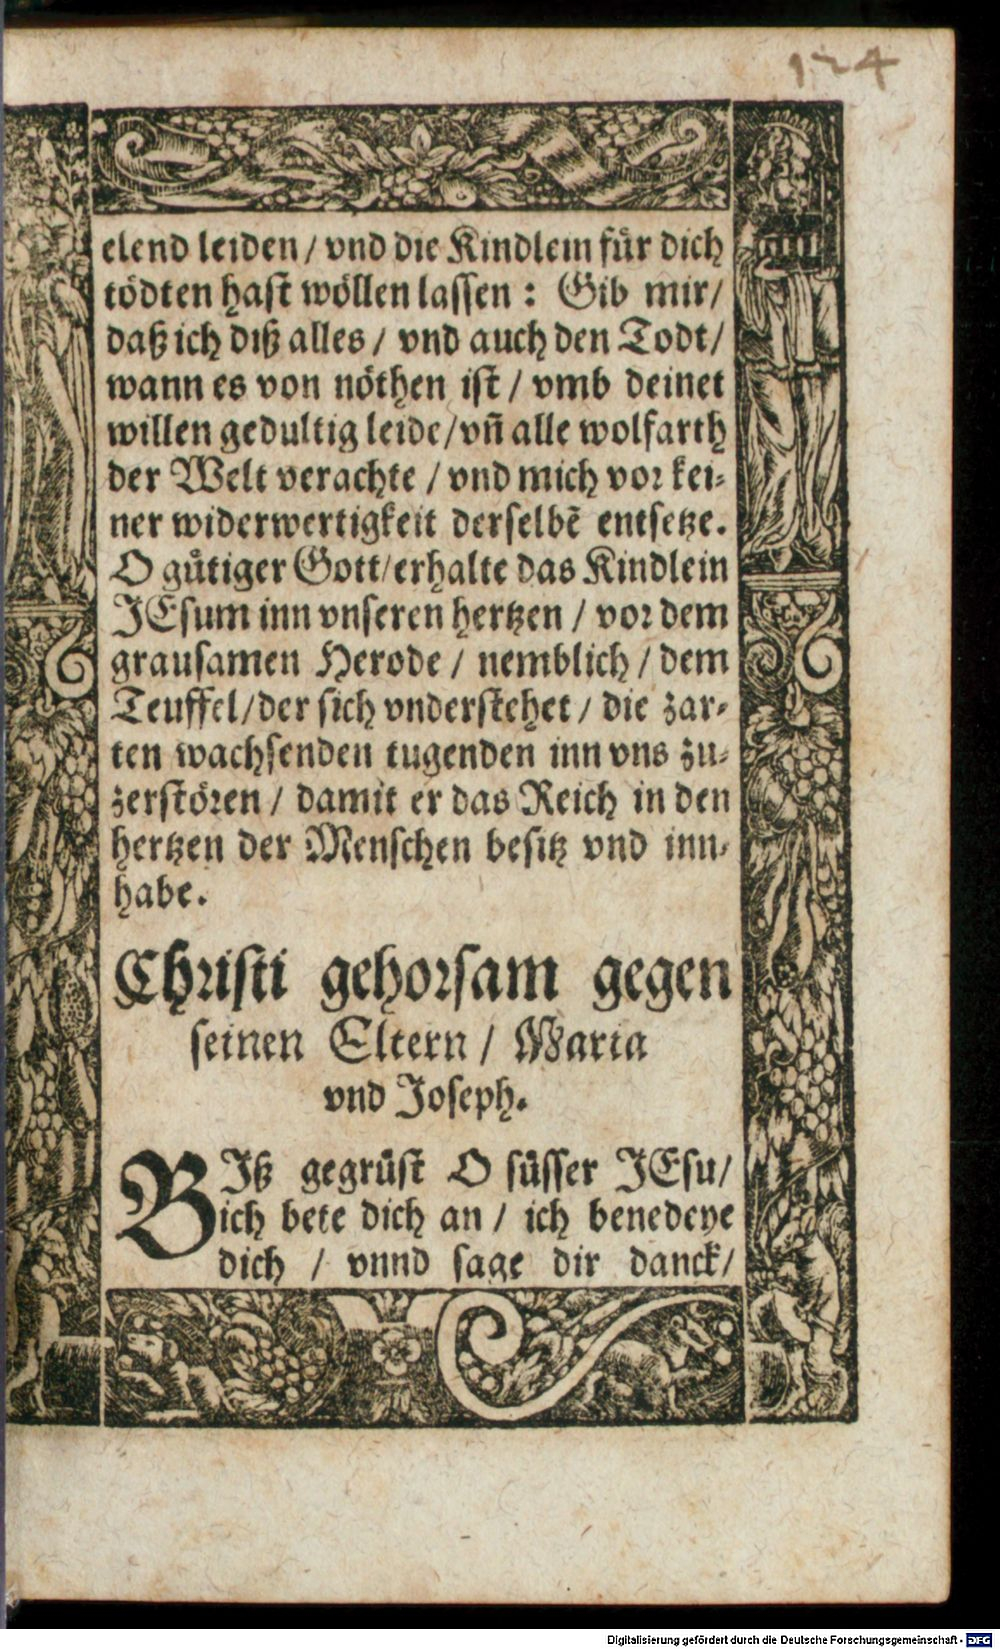 124
elend leiden / vnd die Kindlein fuͤr dich
toͤdten hast woͤllen lassen : Gib mir /
daß ich diß alles / vnd auch den Todt /
wann es von noͤthen ist / vmb deinet
willen gedultig leide / vñ alle wolfarth
der Welt verachte / vnd mich vor kei-
ner widerwertigkeit derselbẽ entsetze.
O guͤtiger Gott / erhalte das Kindlein
JEsum inn vnseren hertzen / vor dem
grausamen Herode / nemblich / dem
Teuffel / der sich vnderstehet / die zar-
ten wachsenden tugenden inn vns zu-
zerstoͤren / damit er das Reich in den
hertzen der Menschen besitz vnd inn-
habe.
Christi gehorsam gegen
seinen Eltern / Maria
vnd Joseph.
BIß gegruͤst O suͤsser JEsu /
ich bete dich an / ich benedeye
dich / vnnd sage dir danck /
Digitalisierung gefördert durch die Deutsche Forschungsgemeinschaft - DFG